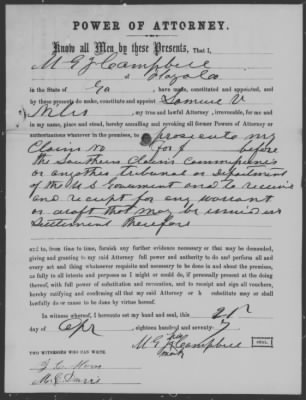 POWER OF ATTORNEY.
Know all Men by these Presents, That I,
M G J Campbell
of
in the State of Ga have made, constituted and appointed, and
by these presents do make, constitute and appoint Samuel V
Niles, my true and lawful Attorney, irrevocable, for me and
in my name, place and stead, hereby annulling and revoking all former Powers of Attorney or
authorizations whatever in the premises, to prosecute my
Claim No for $ before
the Southern Claims Commissioners
or any other tribunal or Department
of the U.S. Government and to receive
and receipt for any warrant
or draft that may be issued in
Settlement therefore
and, from time to time, furnish any further evidence necessary or that may be demanded,
giving and granting to my said Attorney full power and authority to do and perform all and
every act and thing whatsoever requisite and necessary to be done in and about the premises,
as fully to all intents and purposes as I might or could do, if personally present at the doing
thereof, with full power of substitution and revocation, and to receipt and sign all vouchers,
hereby ratifying and confirming all that my said Attorney or h substitute may or shall
lawfully do or cause to be done by virtue hereof.
In witness whereof, I hereunto set my hand and seal, this
day of Apr, eighteen hundred and seventy-7
his
M G J Campbell
mark
SEAL.
TWO WITNESSES WHO CAN WRITE.